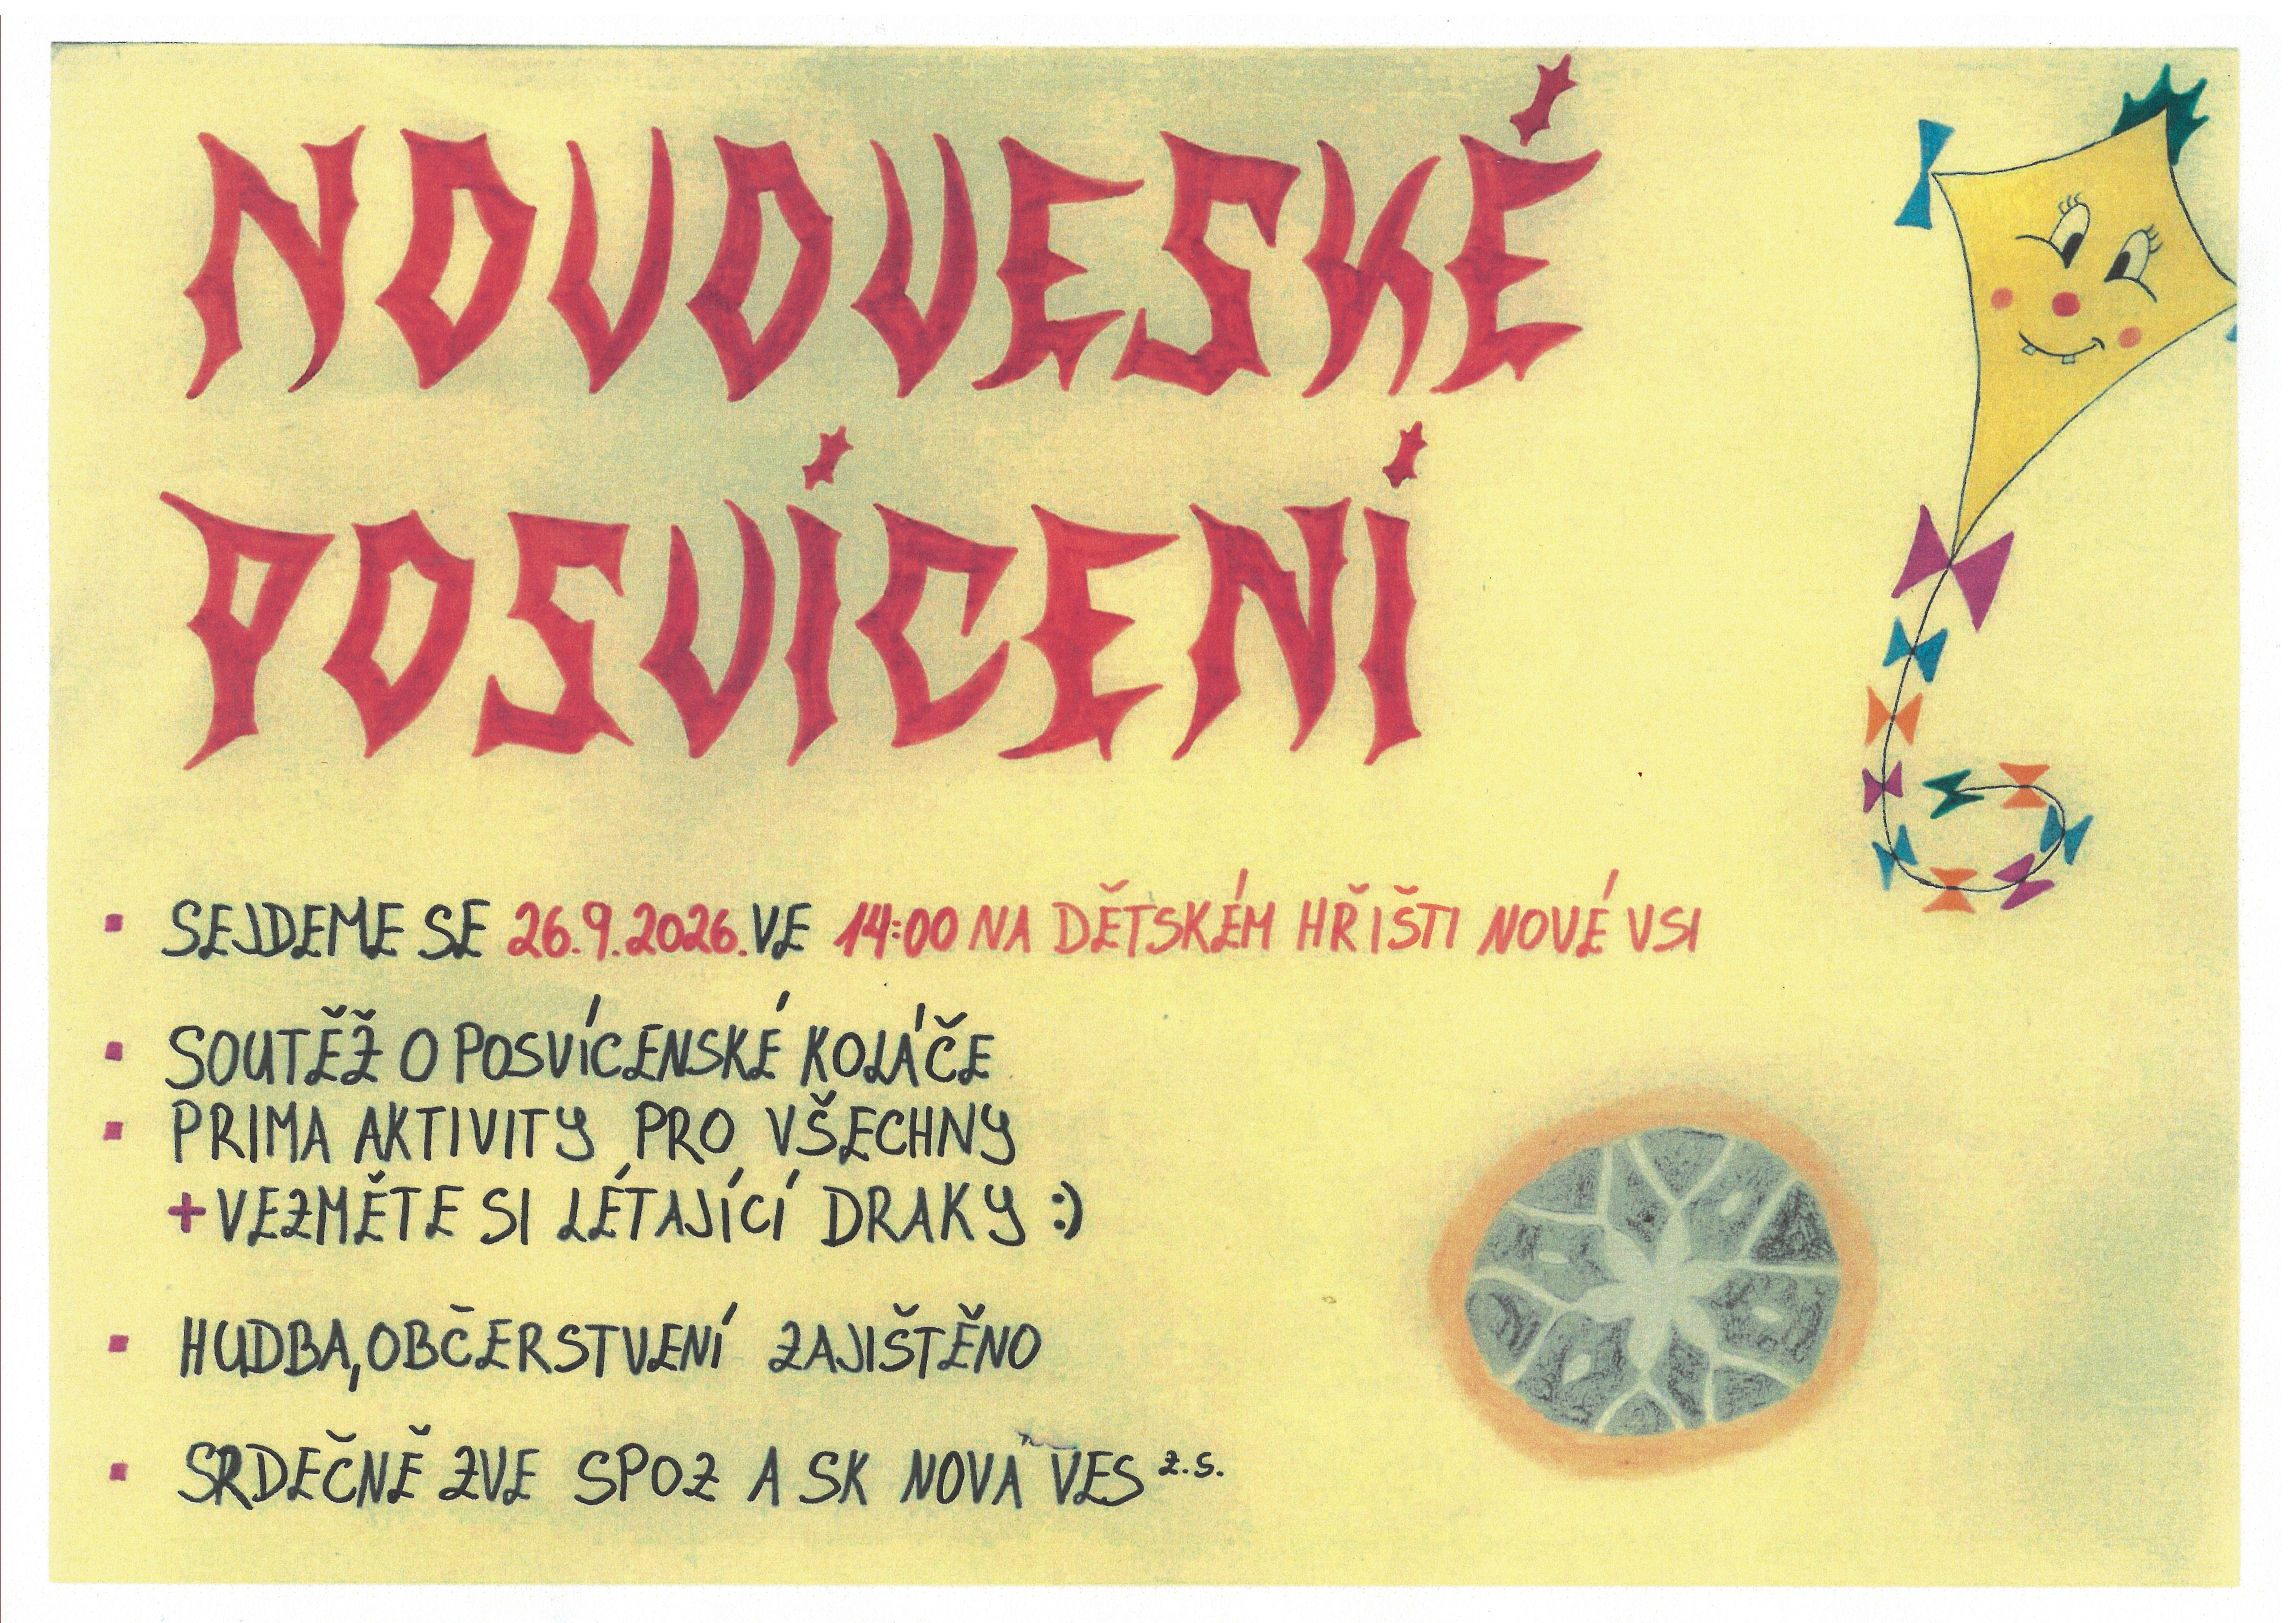 NOVOVESKÉ
POSVÍCENÍ
▪ SEJDEME SE 26.9.2026. VE 14:00 NA DĚTSKÉM HŘIŠTI NOVÉ VSI
▪ SOUTĚŽ O POSVÍCENSKÉ KOLÁČE
▪ PRIMA AKTIVITY PRO VŠECHNY
+ VEZMĚTE SI LÉTAJÍCÍ DRAKY :)
▪ HUDBA, OBČERSTVENÍ ZAJIŠTĚNO
▪ SRDEČNĚ ZVE SPOZ A SK NOVÁ VES z.s.